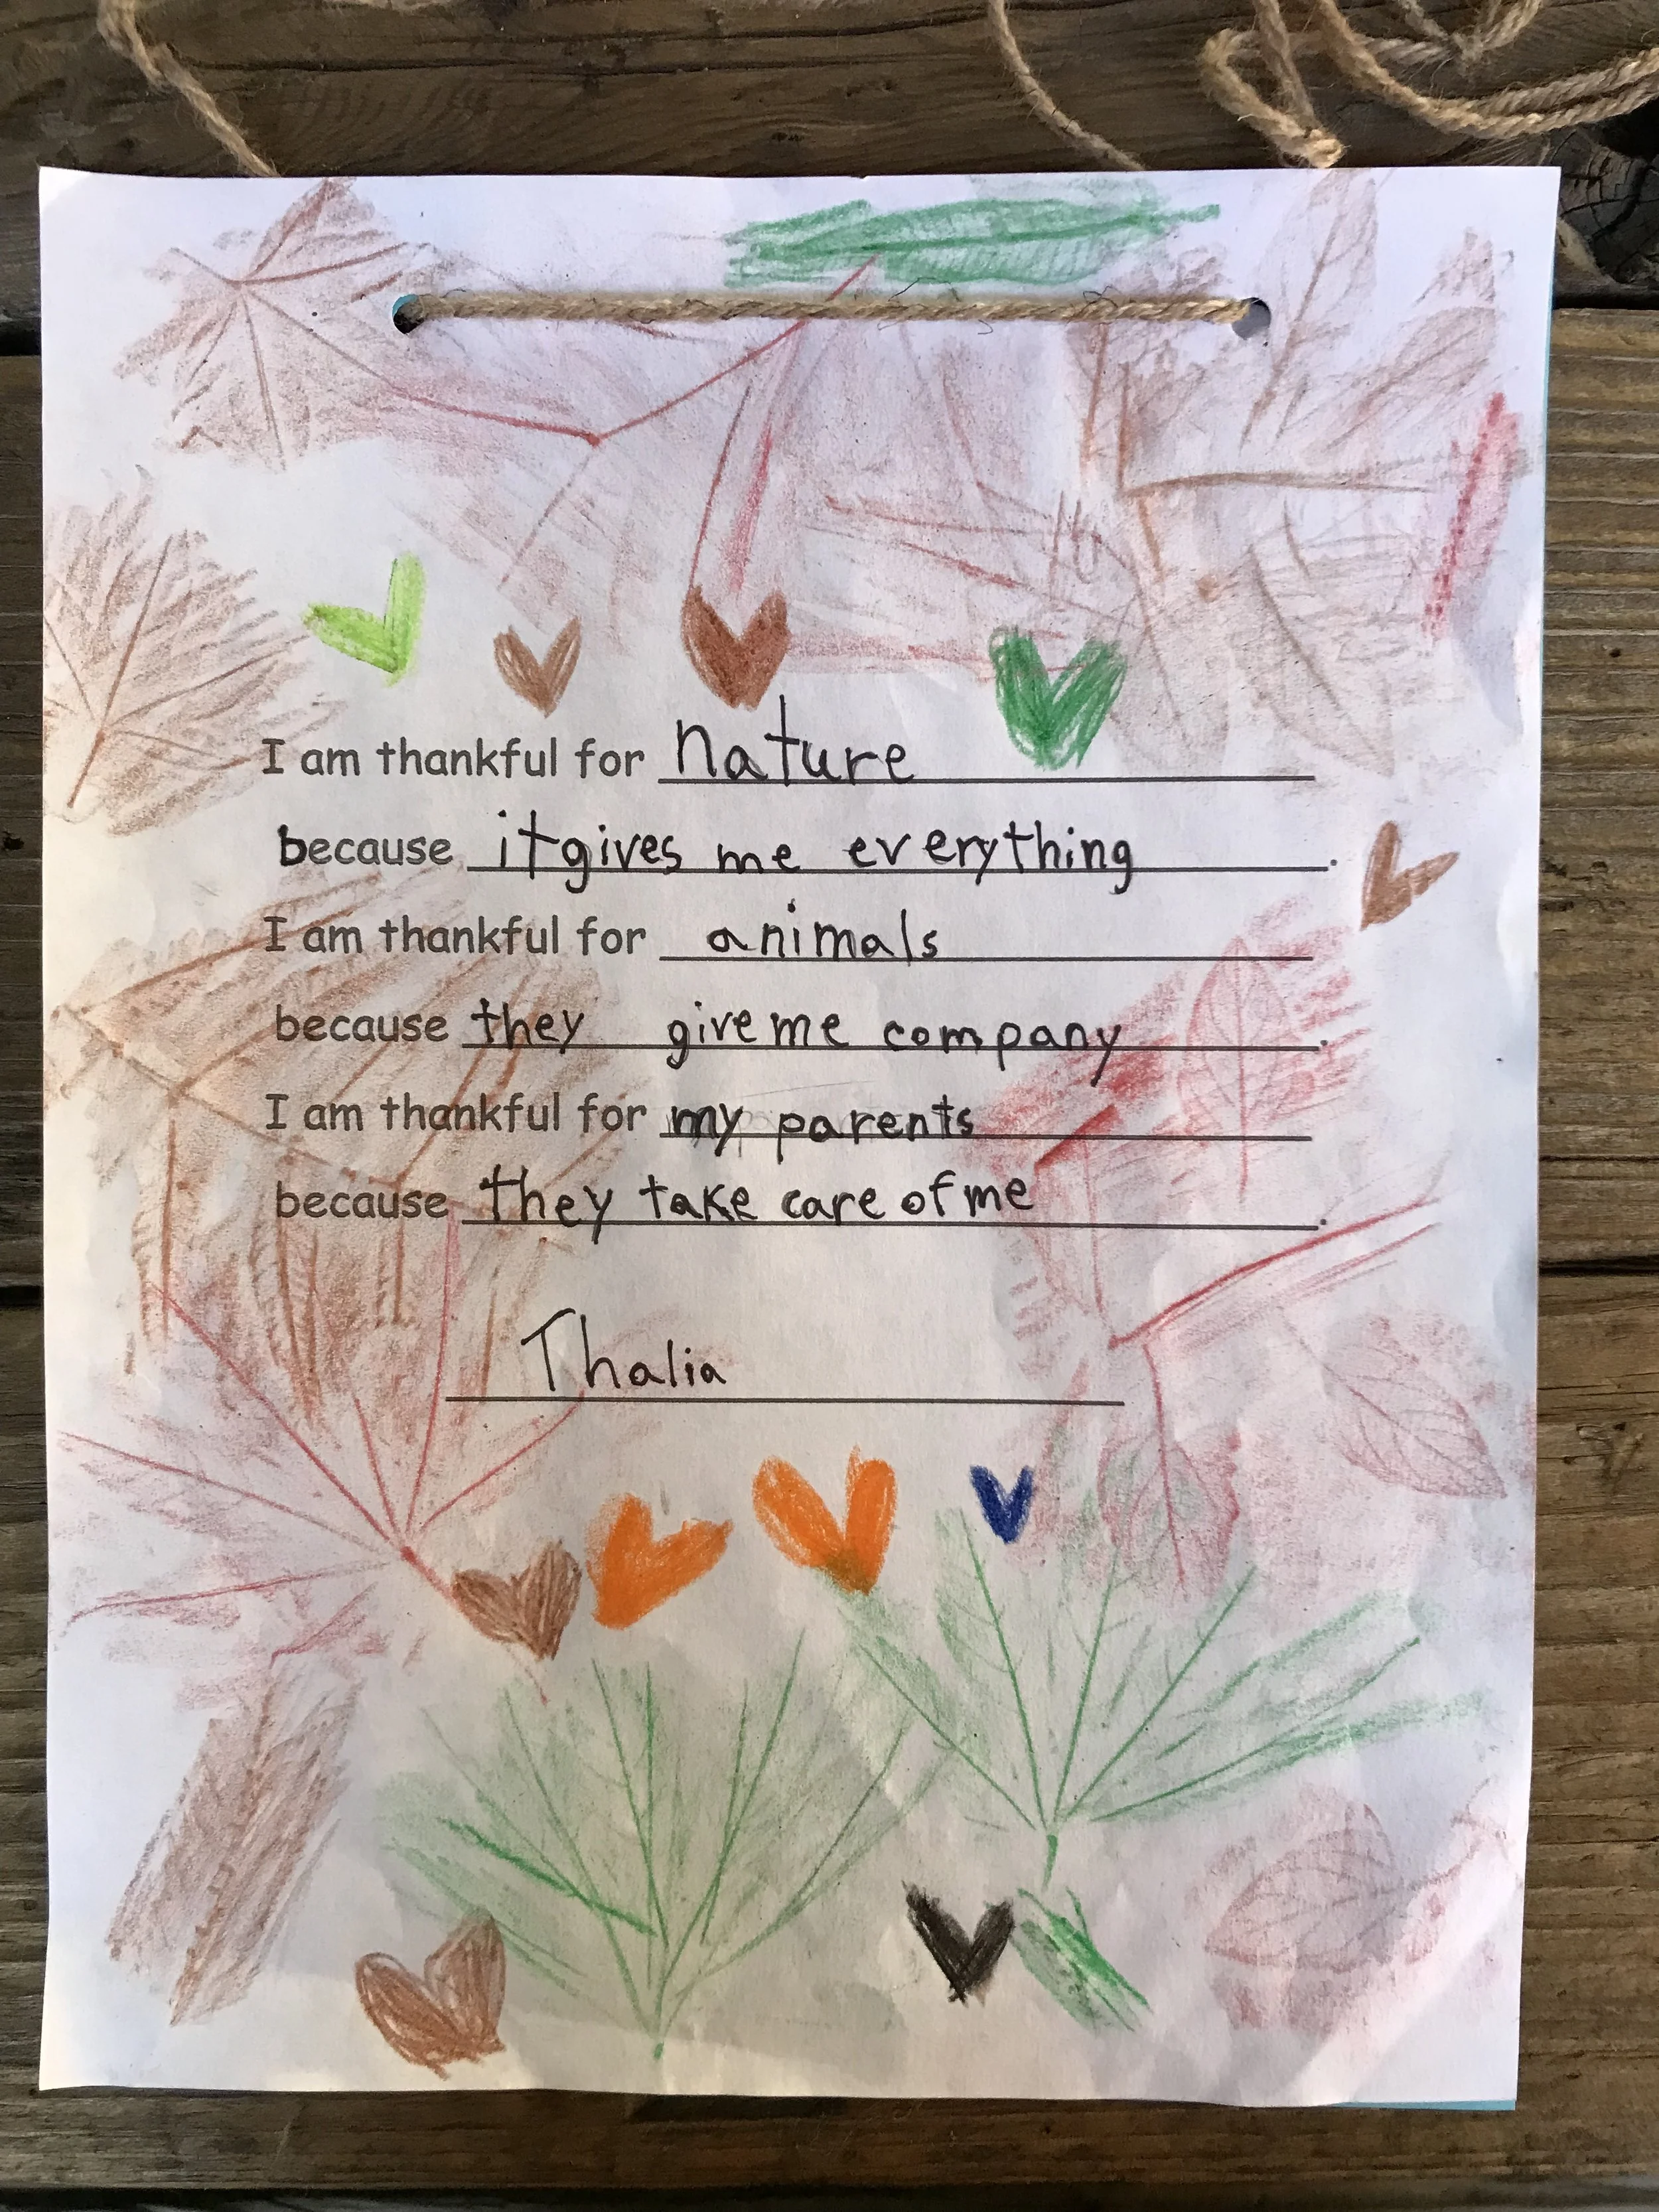 I am thankful for nature
because it gives me everything.
I am thankful for animals
because they give me company.
I am thankful for my parents
because they take care of me.
Thalia